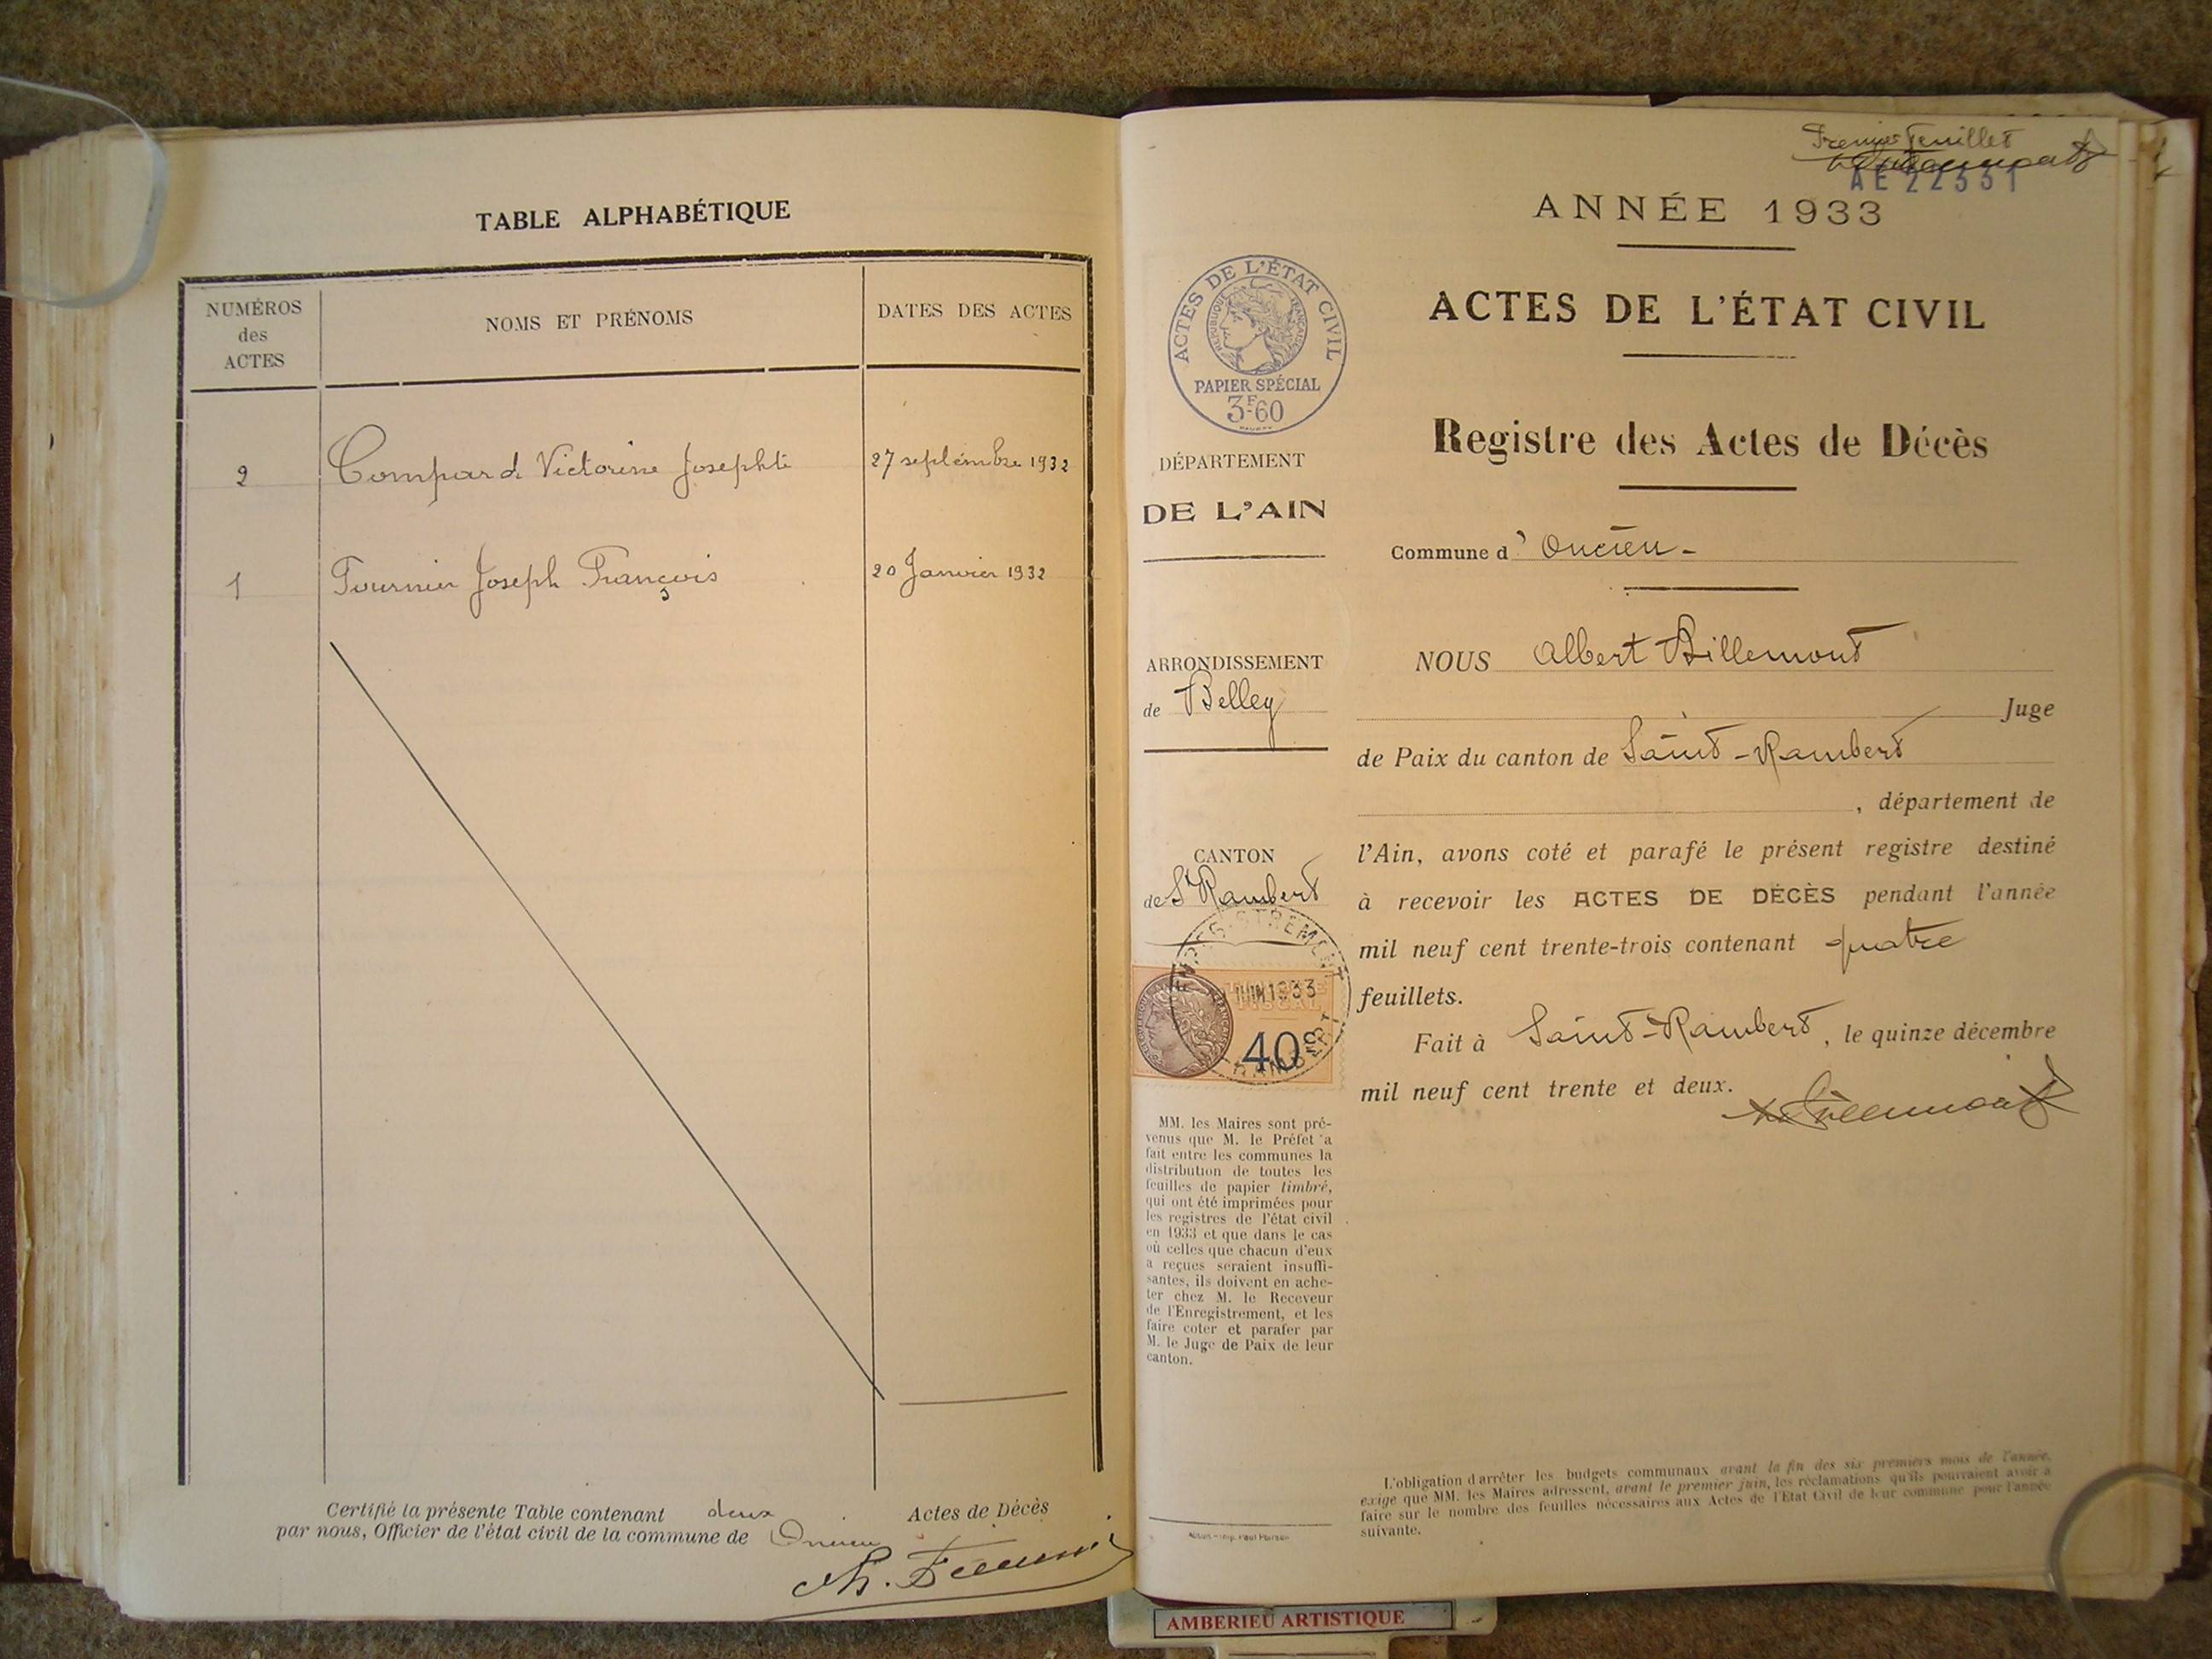 TABLE ALPHABÉTIQUE
NUMÉROS
des
ACTES
NOMS ET PRÉNOMS
DATES DES ACTES
2 Compard Victorine Josephte 27 septembre 1932
1 Fournier Joseph François 20 Janvier 1932
Certifié la présente Table contenant deux Actes de Décès
par nous, Officier de l'état civil de la commune de Oncieu
Premier feuillet
AE 22331
ANNÉE 1933
ACTES DE L'ÉTAT CIVIL
Registre des Actes de Décès
Commune d'Oncieu-
NOUS Albert Billemont
Juge
de Paix du canton de Saint-Rambert
, département de
l'Ain, avons coté et parafé le présent registre destiné
à recevoir les ACTES DE DÉCÈS pendant l'année
mil neuf cent trente-trois contenant quatre
feuillets.
Fait à Saint-Rambert, le quinze décembre
mil neuf cent trente et deux.
ACTES DE L'ÉTAT CIVIL
RÉPUBLIQUE FRANÇAISE
PAPIER SPÉCIAL
3F60
DÉPARTEMENT
DE L'AIN
ARRONDISSEMENT
de Belley
CANTON
de St Rambert
JUIN 1933
FISCAL
40c
MM. les Maires sont pré-
venus que M. le Préfet a
fait entre les communes la
distribution de toutes les
feuilles de papier timbré,
qui ont été imprimées pour
les registres de l'état civil
en 1933 et que dans le cas
où celles que chacun d'eux
a reçues seraient insuffi-
santes, ils doivent en ache-
ter chez M. le Receveur
de l'Enregistrement, et les
faire coter et parafer par
M. le Juge de Paix de leur
canton.
L'obligation d'arrêter les budgets communaux avant la fin des six premiers mois de l'année,
exige que MM. les Maires adressent, avant le premier juin, les réclamations qu'ils pourraient avoir à
faire sur le nombre des feuilles nécessaires aux Actes de l'Etat Civil de leur commune pour l'année
suivante.
AMBERIEU ARTISTIQUE